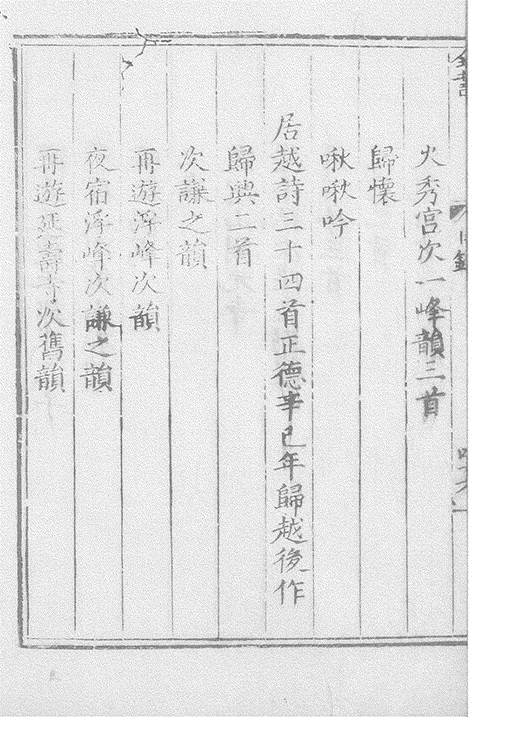 火秀宮次一峰韻三首
歸懷
啾啾吟
居越詩三十四首正德辛巳年歸越後作
歸興二首
次謙之韻
再遊浮峰次韻
夜宿浮峰次謙之韻
再遊延壽寺次舊韻